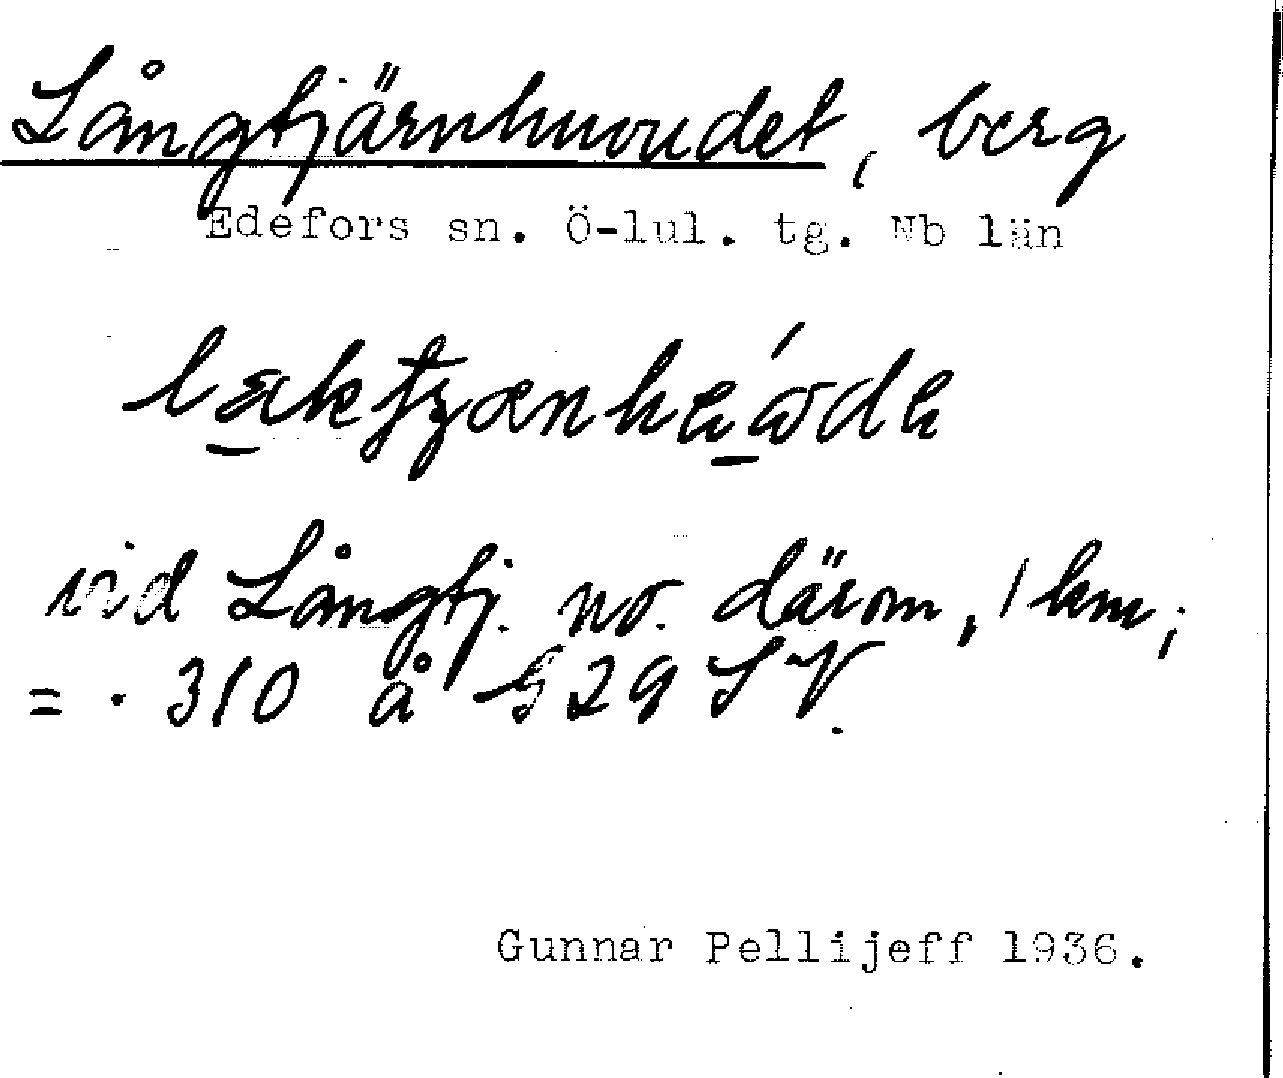 Långtjärnhuvudet, berg
Edefors sn. Ö-lul. tg. Nb län
vid Långtj. no. därom, 1 km;
= · 310 å § 29 SV.
Gunnar Pellijeff 1936.